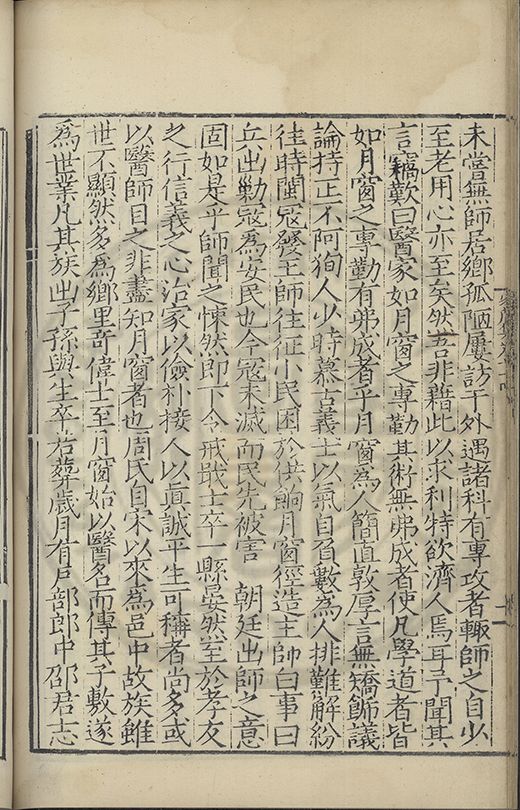 未嘗無師居鄉孤陋屢訪于外遇諸科有專攻者輙師之自少
至老用心亦至矣然吾非藉此以求利特欲濟人焉耳予聞其
言竊歎曰醫家如月窗之專勤其術無弗成者使凡學道者皆
如月窗之專勤有弗成者乎月窗為人簡直敦厚言無矯飾議
論持正不阿狥人少時慕古義士以氣自負數為人排難解紛
往時閩寇發王師往征小民困於供餉月窗徑造主帥曰事曰
兵出勦寇為安民也今寇未滅而民先被害 朝廷出師之意
固如是乎師聞之悚然即下令戒戢士卒一縣晏然至於孝友
之行信義之心治家以儉朴接人以真誠平生可稱者尚多或
以醫師目之非盡知月窗者也周氏自宋以來為邑中故族雖
世不顯然多為鄉里奇偉士至月窗始以醫名而傳其子敷遂
為世業凡其族出子孫與生卒若葬歲月有戶部郎中邵君志